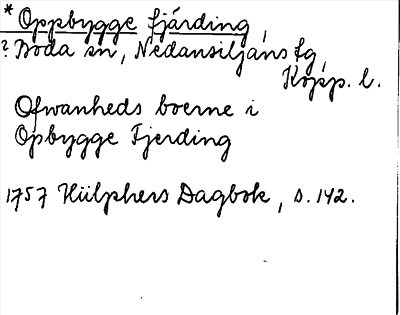 * Oppbygge fjärding,
? Boda sn, Nedansiljans fg,
Kopp. l.
Ofwanheds boerne i
Opbygge Fjerding
1757 Hülphers Dagbok, s. 142.